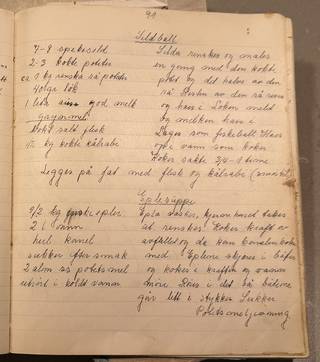 91
Sildball
7-8 spekesild
2-3 kokte poteter
ca 1 kg renska rå poteter
løk
1 liter god melk
Kokt salt flesk
½ kg kokte kålrabe
Silda renskes og males
en gong med den kokte
potet og det halve av den
rå Resten av den rå rives
og has i Løken
og melken has i
Lages som fiskeball Klaes
i vann som koker
Koker sakte 3/4-1 time
Legges på fat med flesk og kålrabe
Eplesuppe
1/2 kg friske epler
2 l vann
hel kanel
sukker efter smak
2 alm ss potetsmel
utrørt i koldt vann
Epla vaskes, kjernehuset takes
ut renskes Kokes kraft av
avfallet og de kan kanelen koke
med Eplene skjæres i båter
og kokes i kraften og vannet
møre Røres i det bå
går lett i stykker Sukker
Potetsmeljevning